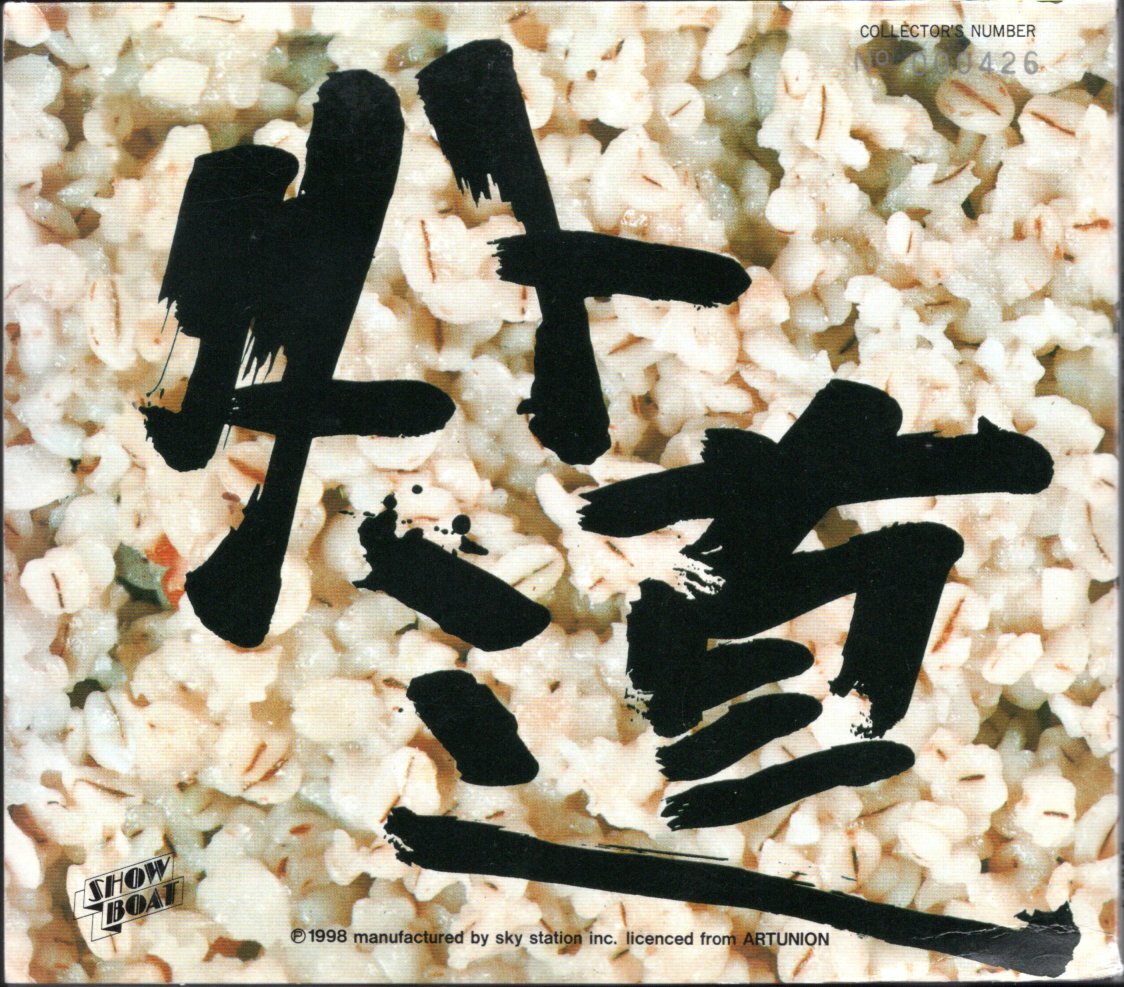 COLLECTOR'S NUMBER
No 000426
外道
SHOW
BOAT
℗1998 manufactured by sky station inc. licenced from ARTUNION